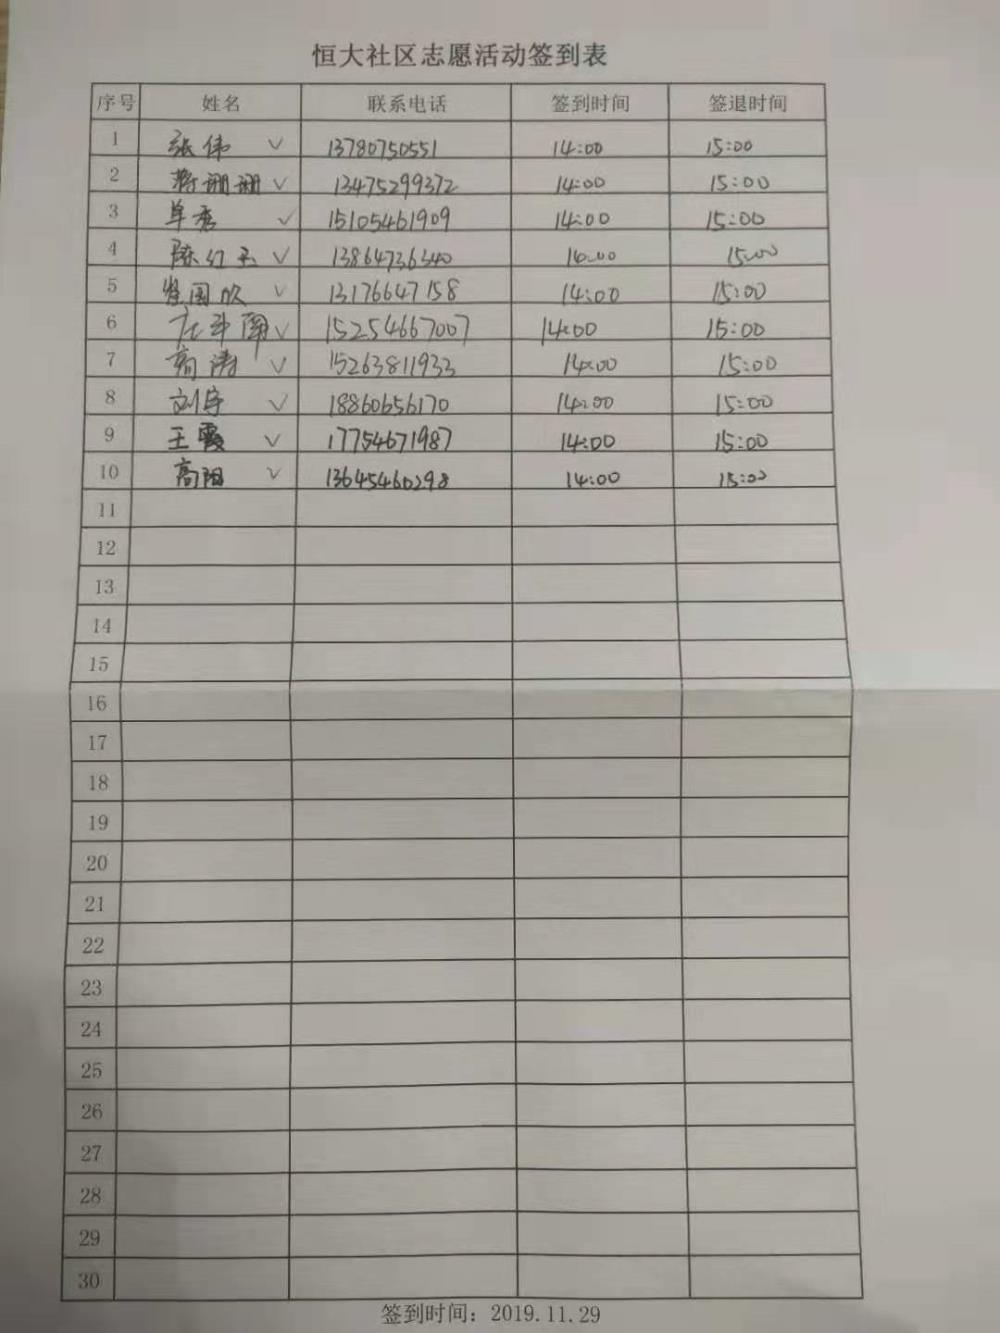 恒大社区志愿活动签到表
序号 姓名 联系电话 签到时间 签退时间
1 张伟 ✓ 13780750551 14:00 15:00
2 蒋珊珊 ✓ 13475299372 14:00 15:00
3 单秀 ✓ 15105461909 14:00 15:00
4 陈红玉 ✓ 13864736340 14:00 15:00
5 国欣 ✓ 13176647158 14:00 15:00
6 ✓ 15254667007 14:00 15:00
7 高涛 ✓ 15263811933 14:00 15:00
8 刘宇 ✓ 18860656170 14:00 15:00
9 王霞 ✓ 17754671987 14:00 15:00
10 高阳 ✓ 13645460298 14:00 15:00
11
12
13
14
15
16
17
18
19
20
21
22
23
24
25
26
27
28
29
30
签到时间：2019.11.29